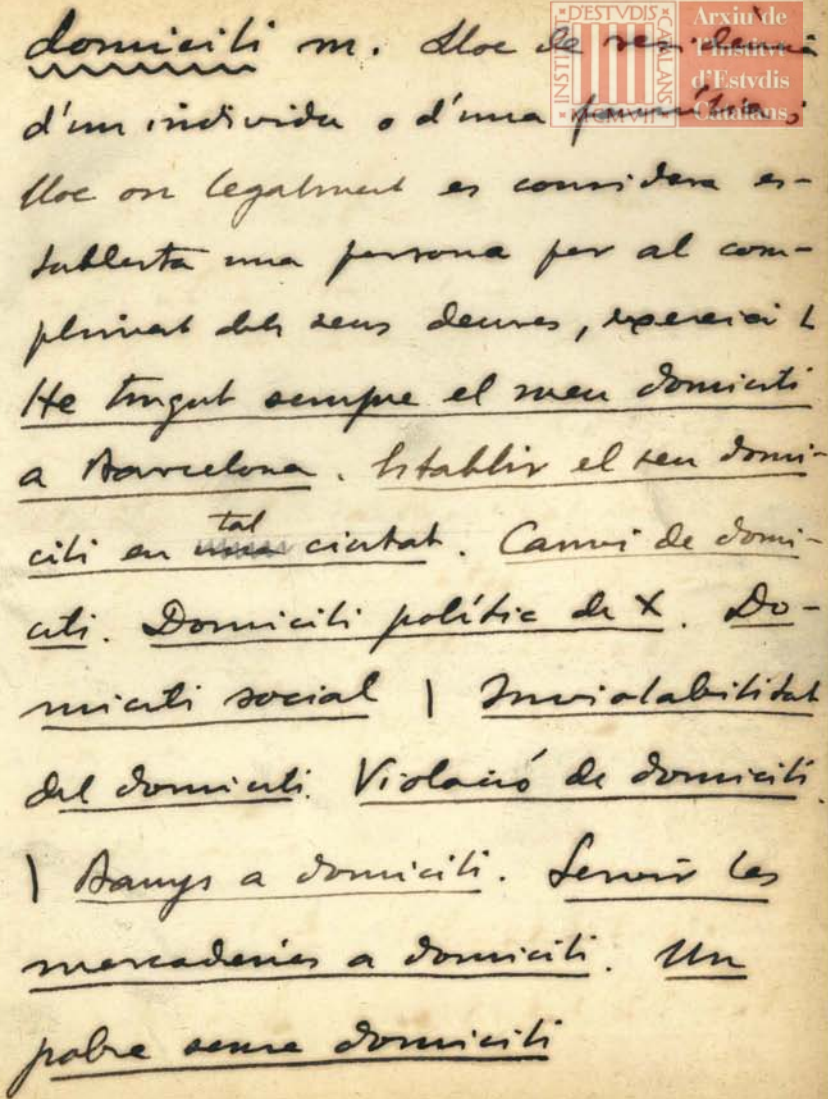 domicili m. Lloc de residència
d'un individu o d'una família;
lloc on legalment es considera es-
tablerta una persona per al com-
pliment dels seus deures, exercici
He tingut sempre el meu domicili
a Barcelona. Establir el seu domi-
cili en tal ciutat. Canvi de domi-
cili. Domicili polític de X. Do-
micili social | Inviolabilitat
del domicili. Violació de domicili.
| Banys a domicili. Servir les
mercaderies a domicili. Un
pobre sense domicili
INSTITVT D'ESTVDIS CATALANS MCMVII
Arxiu de
l'Institvt
d'Estvdis
Catalans